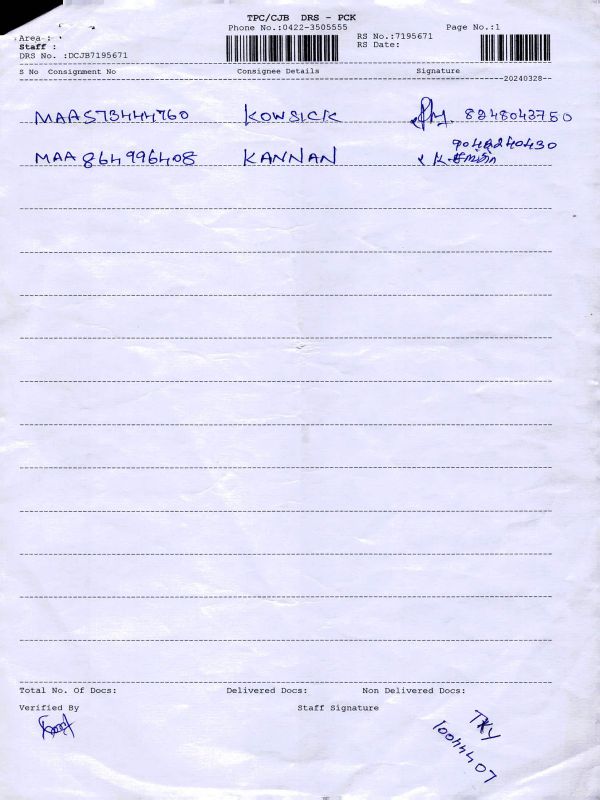 TPC/CJB DRS - PCK
Phone No.:0422-3505555
Page No.:1
Area :
RS No.:7195671
Staff :
RS Date:
DRS No. :DCJB7195671
S No Consignment No Consignee Details Signature
20240328
MAA573444760 KOWSICK 8248043750
MAA864996408 KANNAN
Total No. Of Docs: Delivered Docs: Non Delivered Docs:
Verified By Staff Signature
TKY
10044407